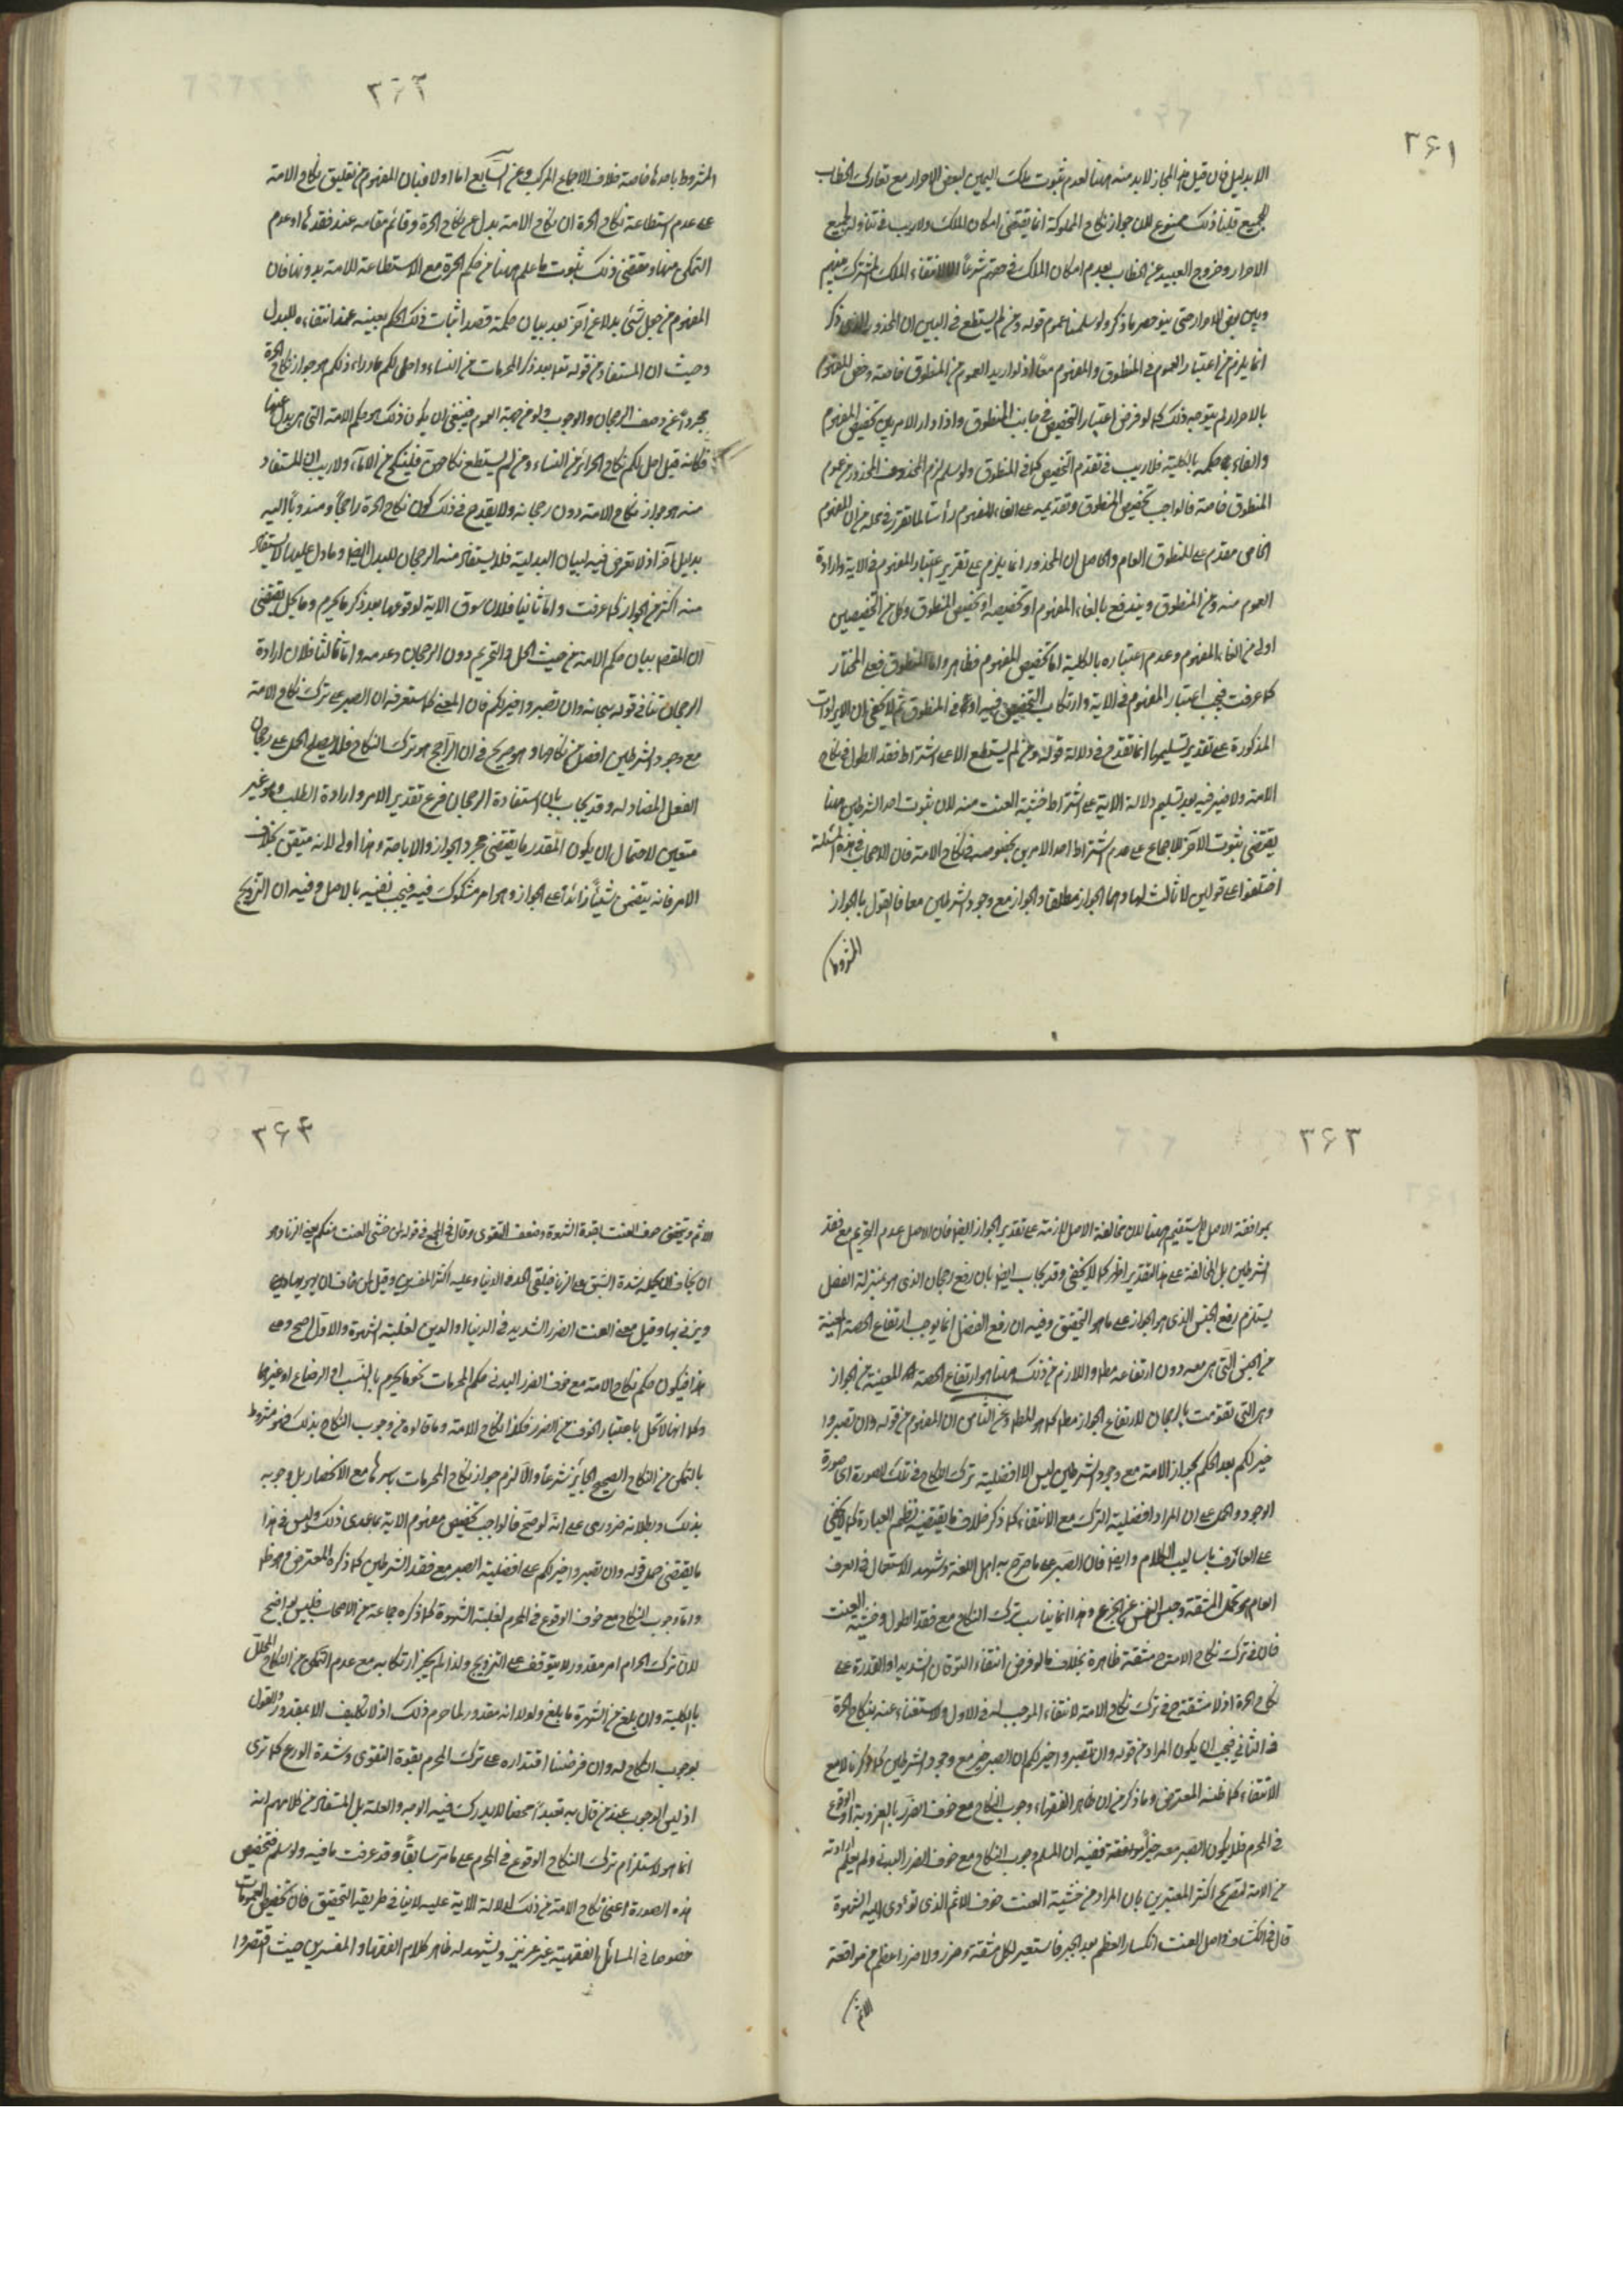 ٣٦١
الا بدليل فان قيل هذا المجاز لا بد منه ههنا لعدم ثبوت ملك اليمين لبعض الاحرار مع تعارك الخطاب
للجميع قلنا ذلك ممنوع لان جواز نكاح المملوكة انما يقتضى امكان الملك ولا ريب فى تناوله لجميع
الاحرار وخروج العبيد عن الخطاب بعدم امكان الملك فى حقهم شرعا لا لانتفاء الملك المشترك بينهم
وبين بعض الاحرار حتى يتوجه ما ذكر ولو سلمنا عموم قوله ومن لم يستطع فى البين ان المحذور الذى ذكر
انما يلزم من اعتبار العموم فى المنطوق والمفهوم معا اذ لو اريد العموم من المنطوق خاصة وخص المفهوم
بالاحرار لم يتوجه ذلك كما لو فرض اعتبار التخصيص فى جانب المنطوق واذا دار الامر بين تخصيص المفهوم
والغاء حكمه بالكلية فلا ريب فى تقدم التخصيص كما فى المنطوق ولو سلم لزوم المحذور فالمحذور من عموم
المنطوق خاصة فالواجب تخصيص المنطوق وتقديمه على الغاء المفهوم رأسا لما تقرر فى محله من ان المفهوم
الخاص مقدم على المنطوق العام والحاصل ان المحذور انما يلزم على تقدير اعتبار المفهوم فى الاية وارادة
العموم منه ومن المنطوق ويندفع بالغاء المفهوم او تخصيصه او تخصيص المنطوق وكل من التخصيصين
اولى من الغاء المفهوم وعدم اعتباره بالكلية اما تخصيص المفهوم فظاهر واما المنطوق فعلى المختار
كما عرفت فيجب اعتبار المفهوم فى الاية وارتكاب التخصيص فيه او فى المنطوق ثم لا يخفى ان الايرادات
المذكورة على تقدير تسليمها انما تقدح فى دلالة قوله ومن لم يستطع الا على اشتراط فقد الطول فى نكاح
الامة ولا ضير فيه بعد تسليم دلالة الاية على اشتراط خشية العنت منه لان ثبوت احد الشرطين هنا
يقتضى ثبوت الآخر للاجماع على عدم اشتراط احد الامرين بخصوصه فى نكاح الامة فان الاصحاب فى هذه المسئلة
اختلفوا على قولين لا ثالث لهما وهما الجواز مطلقا والجواز مع وجود الشرطين معا فالقول بالجواز
المشروط
٣٦٢
المشروط باحدهما خاصة خلاف الاجماع المركب وعن السابع اما اولا فبان المفهوم من تعليق نكاح الامة
على عدم استطاعة نكاح الحرة ان نكاح الامة بدل عن نكاح الحرة وقائم مقامه عند فقدها او عدم
التمكن منها ومقتضى ذلك ثبوت ما علم ههنا من حكم الحرة مع الاستطاعة للامة بدونها فان
المفهوم من جعل شئ بدلا عن آخر بعد بيان حكمه قصد اثبات ذلك الحكم بعينه عند انتفاءه للبدل
وحيث ان المستفاد من قوله تعالى بعد ذكر المحرمات من النساء واحل لكم ما وراء ذلكم هو جواز نكاح الحرة
مجردا عن وصف الرجحان والوجوب ولو من جهة العموم فينبغى ان يكون ذلك هو حكم الامة التى هى بدل عنها
فكانه قيل احل لكم نكاح الحرائر من النساء ومن لم يستطع نكاحهن فلينكح من الاماء ولا ريب ان المستفاد
منه هو جواز نكاح الامة دون رجحانه ولا يقدح فى ذلك كون نكاح الحرة راجحا ومندوبا اليه
بدليل آخر اذ لا تعرض فيه لبيان البدلية فلا يستفاد منه الرجحان للبدل ايضا وما دل عليها لا يستفاد
منه اكثر من الجواز كما عرفت واما ثانيا فلان سوق الاية لوقوعها بعد ذكر ما يحرم وما يحل يقتضى
ان المقصد بيان حكم الامة من حيث الحل والتحريم دون الرجحان وعدمه واما ثالثا فلان ارادة
الرجحان تنافى قوله سبحانه وان تصبروا خير لكم فان المعنى كما ستعرفه ان الصبر على ترك نكاح الامة
مع وجود الشرطين افضل من نكاحها وهو صريح فى ان الراجح هو ترك النكاح فلا يصلح الحمل على رجحان
الفعل المضاد له وقد يجاب بان استفادة الرجحان فرع تقدير الامر وارادة الطلب وهو غير
متعين لاحتمال ان يكون المقدر ما يقتضى مجرد الجواز والاباحة وهذا اولى لانه متيقن بخلاف
الامر فانه يتضمن شيئا زائدا على الجواز وهو امر مشكوك فيه فيجب نفيه بالاصل وفيه ان الترجيح
٣٦٣
بموافقة الاصل لا يستقيم ههنا لان مخالفة الاصل لازمة على تقدير الجواز ايضا فان الاصل عدم التحريم مع فقد
الشرطين بل المخالفة على هذا التقدير اظهر كما لا يخفى وقد يجاب ايضا بان رفع رجحان الذى هو بمنزلة الفصل
يستلزم رفع الجنس الذى هو الجواز على ما هو التحقيق وفيه ان رفع الفصل انما يوجب ارتفاع الحصة المعينة
من الجنس التى هى معه دون ارتفاعه مطلقا واللازم من ذلك ههنا هو ارتفاع الحصة المعينة من الجواز
وهى التى تقومت بالرجحان لا ارتفاع الجواز مطلقا كما هو المطلوب وعن الثامن ان المفهوم من قوله وان تصبروا
خير لكم بعد الحكم بجواز الامة مع وجود الشرطين ليس الا افضلية ترك النكاح فى تلك الصورة اى صورة
الوجود والحمل على ان المراد افضلية الترك مع الانتفاء كما ذكر خلاف ما يقتضيه نظم العبارة كما لا يخفى
على العارف باساليب الكلام وايضا فان الصبر على ما صرح به اهل اللغة ويشهد له الاستعمال فى العرف
العام هو تحمل المشقة وحبس النفس عن الجزع وهذا انما يناسب ترك النكاح مع فقد الطول وخشية العنت
فان فى ترك نكاح الامة ح مشقة ظاهرة بخلاف ما لو فرض انتفاء التوقان الشديد او القدرة على
نكاح الحرة اذ لا مشقة ح فى ترك نكاح الامة لانتفاء الموجب له فى الاول والاستغناء عنه بنكاح الحرة
فى الثانى فيجب ان يكون المراد من قوله وان تصبروا خير لكم ان الصبر خير مع وجود الشرطين كما ذكرنا لا مع
الانتفاء كما ظنه المعترض وما ذكر من ان ظاهر الفقهاء وجوب النكاح مع خوف الضرر بالعزوبة او الوقوع
فى المحرم فلا يكون الصبر معه خيرا موافقة ففيه ان المسلم وجوب النكاح مع خوف الضرر البدنى ولم يعلم ارادته
من الامة لتصريح اكثر المعتبرين بان المراد من خشية العنت خوف الاثم الذى تؤدى اليه الشهوة
قال فى الكشاف واصل العنت انكسار العظم بعد الجبر فاستعير لكل مشقة وضرر ولا ضرر اعظم من مواقعة
الاثم
٣٦٤
الاثم ويتحقق خوف العنت بقوة الشهوة وضعف التقوى وقال فى المجمع فى قوله لمن خشى العنت منكم يعنى الزنا وهو
ان يخاف ان يحمله شدة الشبق على الزنا فيلقى الحد فى الدنيا وعليه اكثر المفسرين وقيل لمن خاف ان يهويها
ويزنى بها وقيل معنى العنت الضرر الشديد فى الدنيا او الدين لغلبة الشهوة والاول اصح وعلى
هذا فيكون حكم نكاح الامة مع خوف الضرر البدنى حكم المحرمات نحو ما يحرم بالنسب او الرضاع او غيرهما
وكما انها لا تحل باعتبار الخوف من الضرر فكذا نكاح الامة وما قالوه من وجوب النكاح بذلك فهو مشروط
بالتمكن من النكاح الصحيح الجايز شرعا والا لزم جواز نكاح المحرمات باسرها مع الانحصار بل وجوبه
بذلك وبطلانه ضرورى على انه لو صح فالواجب تخصيص مفهوم الاية بما عدى ذلك وليس فى هذا
ما يقتضى حمل قوله وان تصبروا خير لكم على افضلية الصبر مع فقد الشرطين كما ذكره المعترض وهو ظاهر
واما وجوب النكاح مع خوف الوقوع فى المحرم لغلبة الشهوة كما ذكره جماعة من الاصحاب فليس بواضح
لان ترك الحرام امر مقدور لا يتوقف على التزويج ولذا لم يجز ارتكابه مع عدم التمكن من النكاح المحلل
بالكلية وان بلغ من الشهرة ما بلغ ولولا انه مقدور لما حرم ذلك اذ لا تكليف الا بمقدور والقول
بوجوب النكاح له وان فرضنا اقتداره على ترك المحرم بقوة التقوى وشدة الورع كما ترى
اذ ليس الوجوب عند من قال به تعبدا محضا لا يدرك فيه الوجه والعلة بل المستفاد من كلامهم انه
انما هو لاستلزام ترك النكاح الوقوع فى المحرم على ما مر سابقا وقد عرفت ما فيه ولو سلم فتخصيص
هذه الصورة اعنى نكاح الامة من ذلك لدلالة الاية عليه لا ينافى طريقة التحقيق فان تخصيص العمومات
خصوصا فى المسائل الفقهية غير عزيز ويشهد له ظاهر كلام الفقهاء والمفسرين حيث اقتصروا